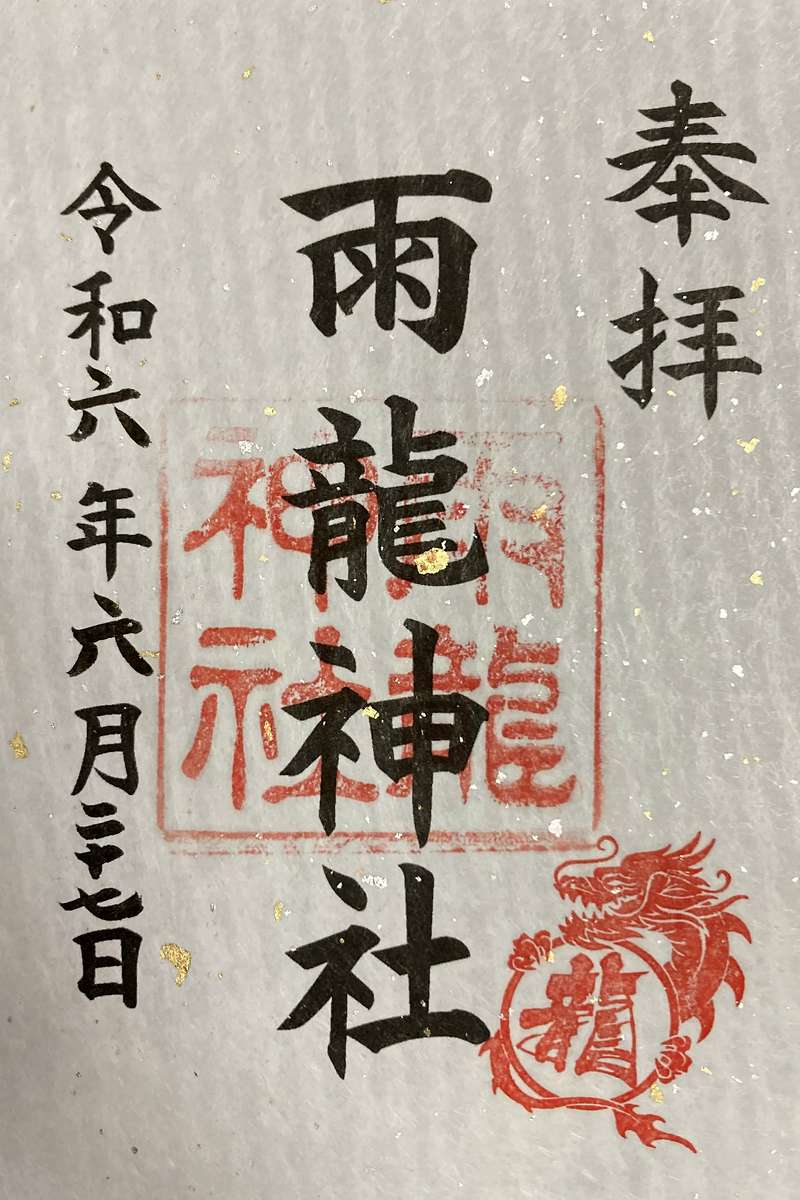 奉拝
雨龍神社
雨龍
神社
龍
令和六年六月二十七日